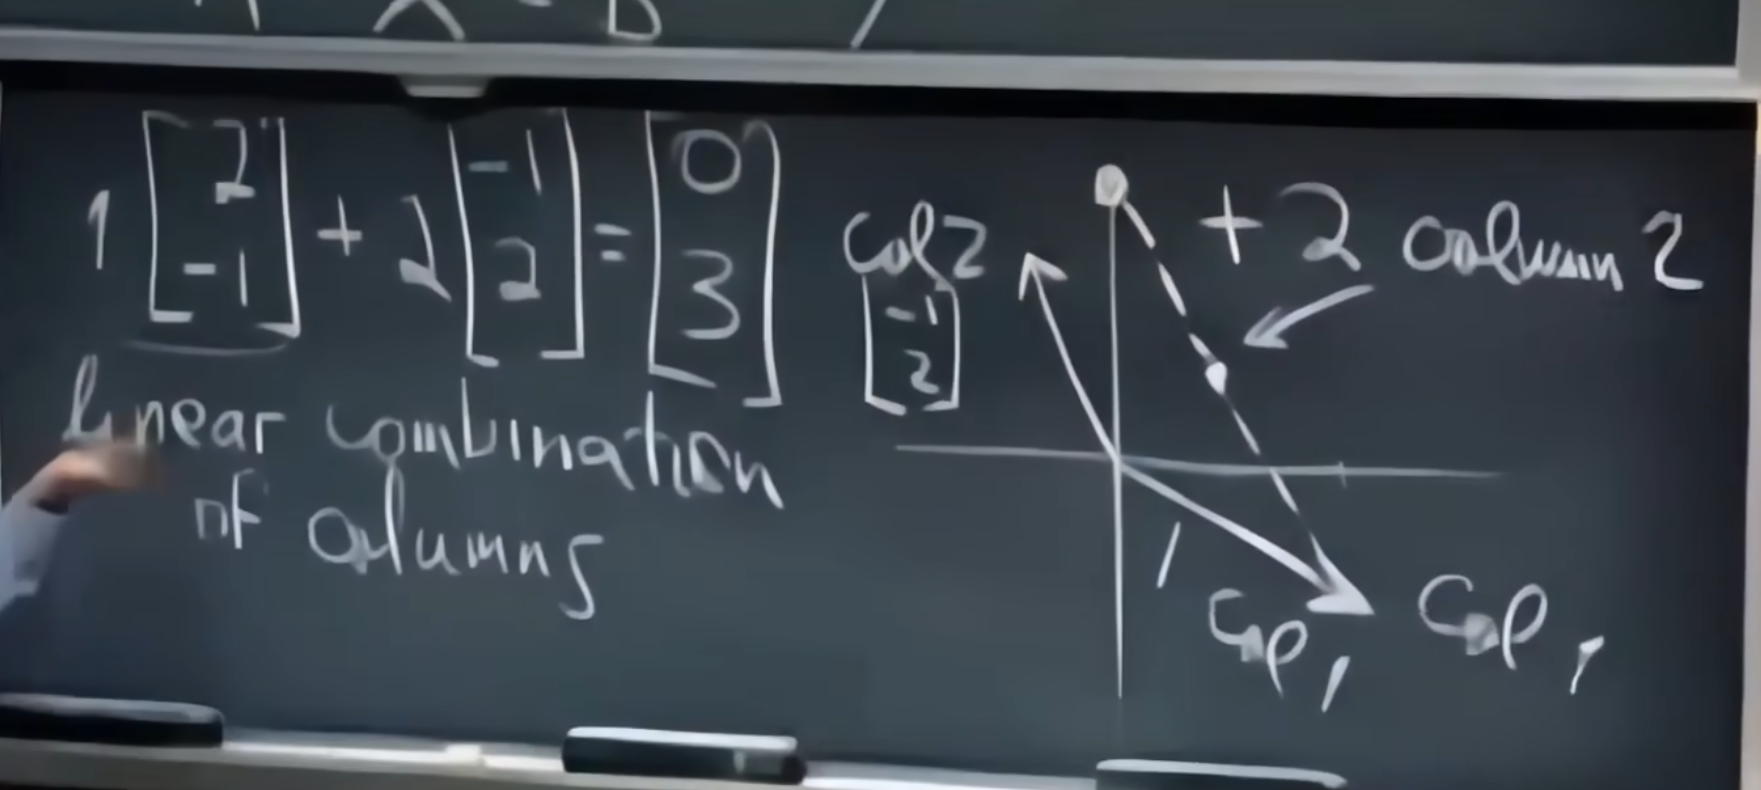 1 [2 -1] + 2 [-1 2] = [0 3]
linear combination
of columns
col 2
[-1 2]
+ 2 column 2
1 col 1
col 1